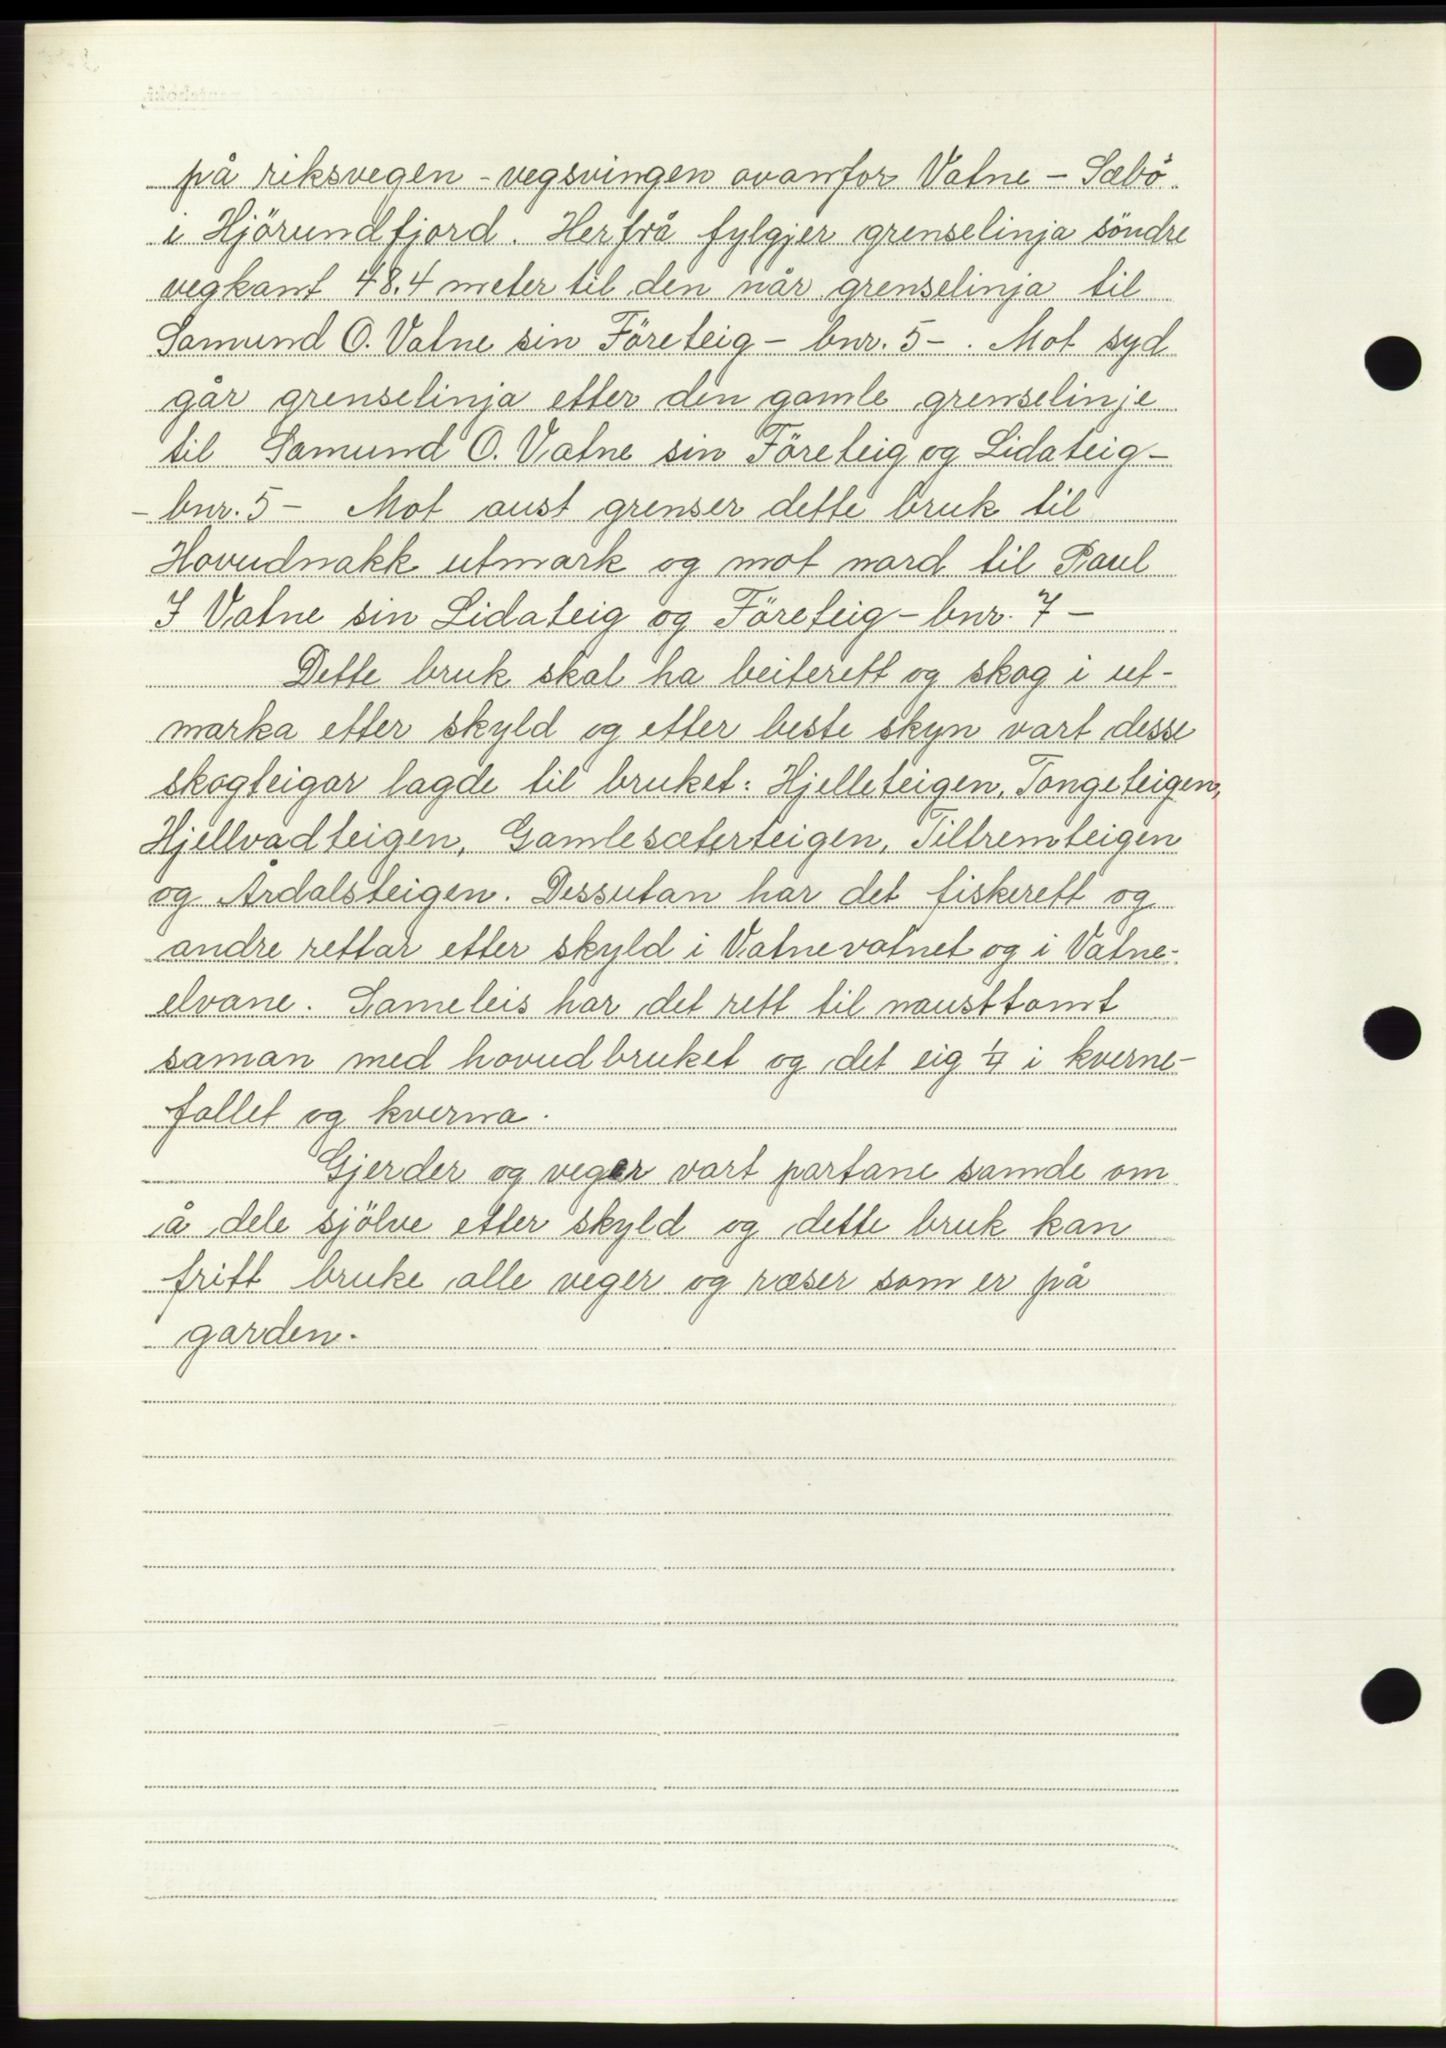 på riksvegen - vegsvingen ovanfor Vatne - Sæbö.
i Hjörundfjord. Herfrå fylgjer grenselinja söndre
vegkant 48.4 meter til den når grenselinja til
Samund O. Vatne sin Företeig - bnr. 5 - . Mot syd
går grenselinja etter den gamle grenselinje
til Samund O. Vatne sin Företeig og Lidateig -
- bnr. 5 - Mot aust grenser dette bruk til
Hovudnakk utmark og mot nord til Paul
I Vatne sin Lidateig og Företeig - bnr. 7 -
Dette bruk skal ha beiterett og skog i ut-
marka etter skyld og etter beste skyn vart desse
skogteigar lagde til bruket: Hjelleteigen, Tangeteigen,
Hjellvadteigen, Gamlesæterteigen, Tiltremteigen
og Årdalsteigen. Dessutan har det fiskerett og
andre rettar etter skyld i Vatnevatnet og i Vatne-
elvane. Sameleis har det rett til nausttomt
saman med hovudbruket og det eig 1/4 i kverne-
fallet og kverna.
Gjerder og veger vart partane samde om
å dele sjölve etter skyld og dette bruk kan
fritt bruke alle veger og ræser som er på
garden.